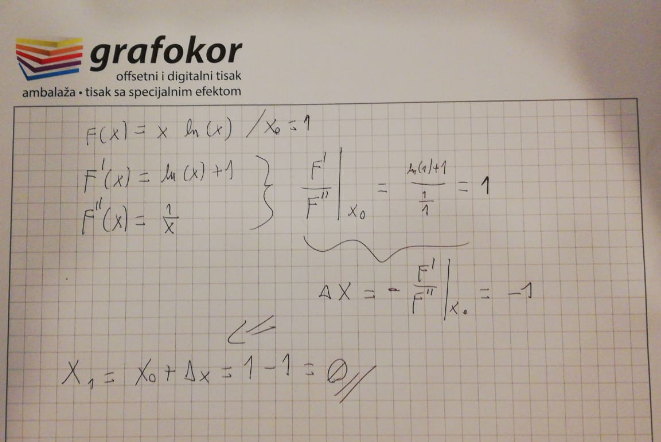 grafokor
offsetni i digitalni tisak
ambalaža • tisak sa specijalnim efektom
F(x) = x ln(x) / x₀ = 1
F'(x) = ln(x) + 1
F''(x) = 1/x
F'/F'' |x₀ = (ln(1)+1)/(1/1) = 1
ΔX = - F'/F'' |x₀ = -1
X₁ = X₀ + Δx = 1 - 1 = 0 //